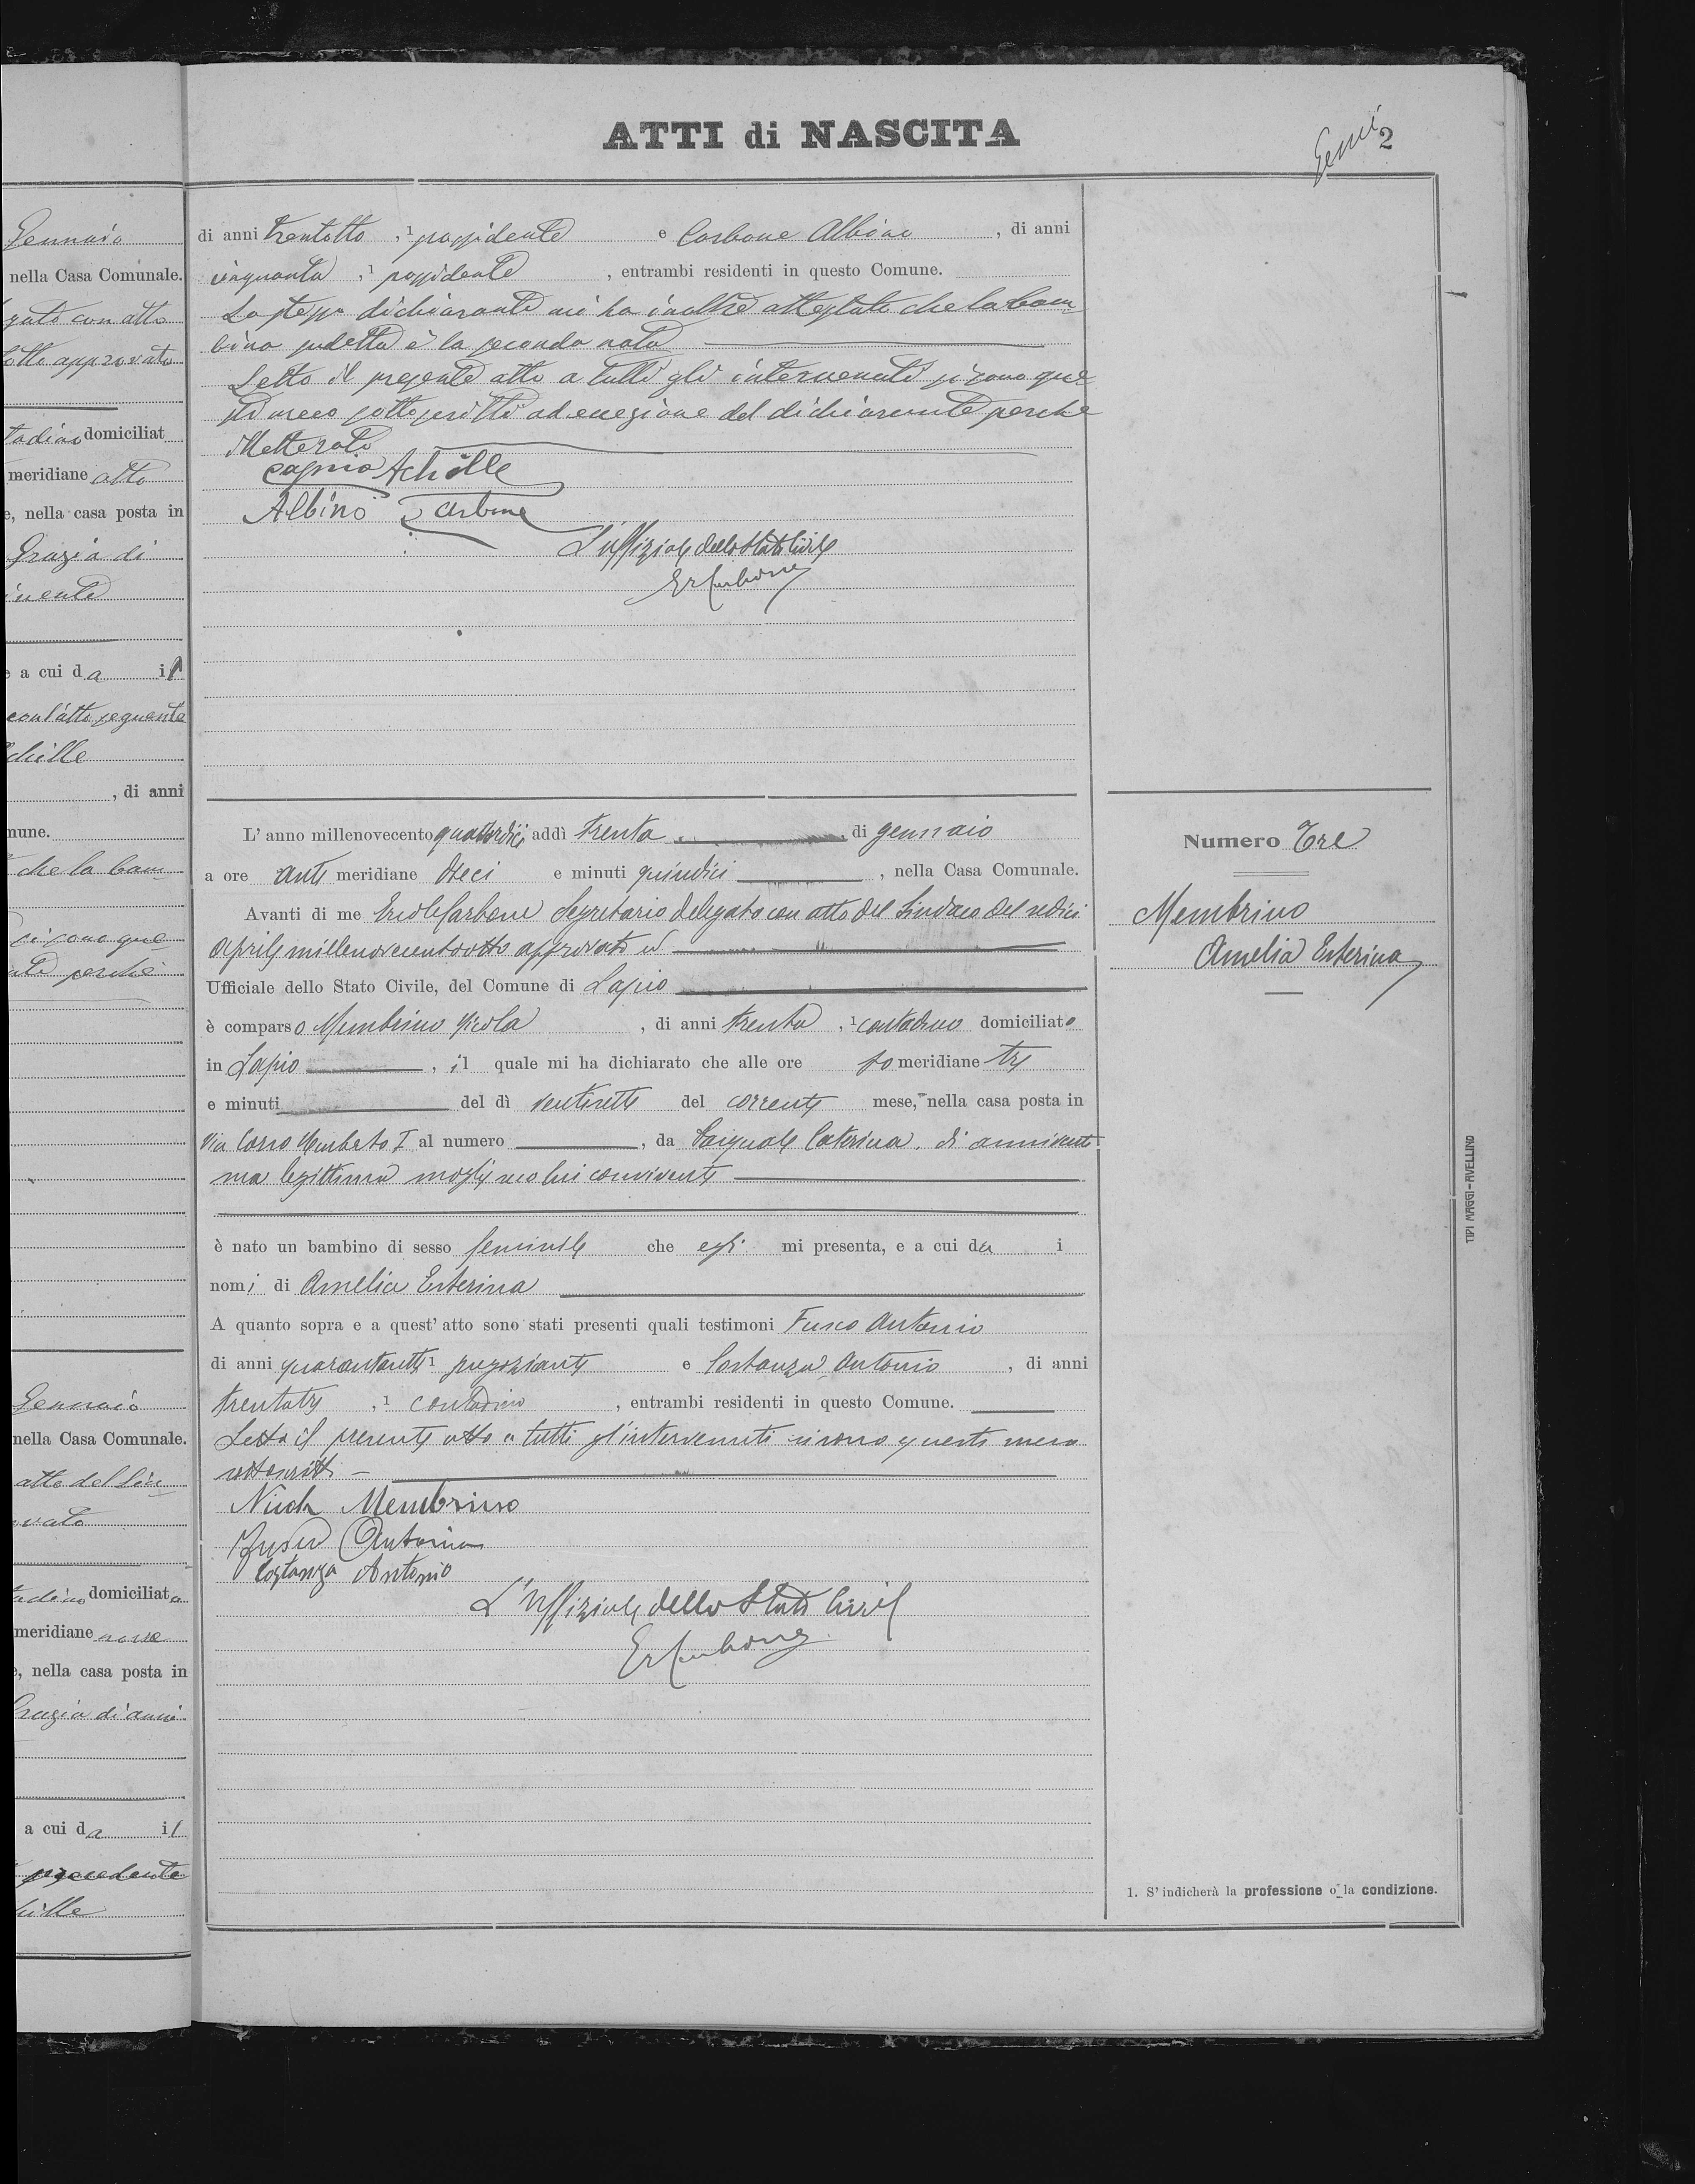 ATTI di NASCITA
2
Gennaio
nella Casa Comunale.
gato con atto
otto approvato
tadino domiciliat
meridiane otto
e, nella casa posta in
Grazia di
ivente
e a cui da il
con l'atto seguente
chille
, di anni
mune.
che la bam-
si sono que-
nte perchè
Gennaio
nella Casa Comunale.
atto del Sin-
vato
tadino domiciliato
meridiane nove
e, nella casa posta in
Grazia di anni
a cui da il
precedente
hille
di anni trentotto , 1 possidente e Carbone Albino , di anni
cinquanta , 1 possidente , entrambi residenti in questo Comune.
Lo stesso dichiarante mi ha inoltre attestato che la bam-
bina sudetta è la seconda nata
Letto il presente atto a tutti gli intervenuti si sono que-
sti meco sottoscritti ad eccezione del dichiarante perchè
illetterato
Achille
Albino Carbone
L'uffiziale dello Stato Civile
ErCarbone
L' anno millenovecento quattordici addì trenta di gennaio
a ore anti meridiane dieci e minuti quindici , nella Casa Comunale.
Avanti di me Ercole Carbone Segretario delegato con atto del Sindaco del sedici
aprile millenovecentootto approvato
Ufficiale dello Stato Civile, del Comune di Lapio
è comparso Membrino Nicola , di anni trenta , 1 contadino domiciliato
in Lapio , il quale mi ha dichiarato che alle ore po meridiane tre
e minuti del dì ventisette del corrente mese, nella casa posta in
Via Corso Umberto I al numero , da Pasquale Caterina, di anni venti
sua legittima moglie seco lui convivente
è nato un bambino di sesso feminile che egli mi presenta, e a cui da i
nomi di Amelia Esterina
A quanto sopra e a quest' atto sono stati presenti quali testimoni Fusco Antonio
di anni quarantasette 1 negoziante e Costanza Antonio , di anni
trentatre , 1 contadino , entrambi residenti in questo Comune.
Letto il presente atto a tutti gl'intervenuti si sono questi meco
sottoscritti -
Nicola Membrino
Fusco Antonio
Costanza Antonio
L'Uffiziale dello Stato Civile
ErCarbone
Numero Tre
Membrino
Amelia Esterina
TIPI MAGGI-AVELLINO
1. S' indicherà la professione o la condizione.